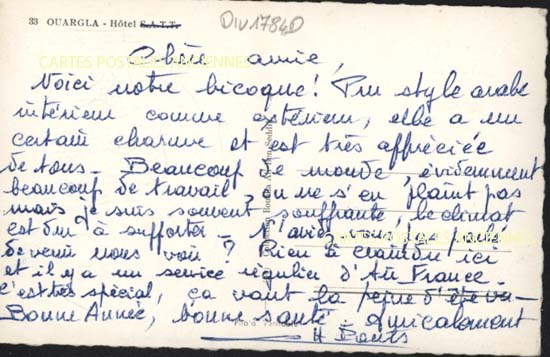 33 OUARGLA - Hôtel S.A.T.T.
Div1784D
CARTES POSTALES ANCIENNES
Chère amie,
Voici notre bicoque ! Pur style arabe
intérieur comme extérieur, elle a un
certain charme et est très appréciée
de tous - Beaucoup de monde, évidemment
beaucoup de travail, on ne s'en plaint pas
mais je suis souvent souffrante, le climat
est dur à supporter - N'aviez vous pas parlé
de venir nous voir ? Rien à craindre ici
et il y a un service régulier d'Air France -
c'est très spécial, ça vaut la peine d'être vu -
Bonne Année, bonne santé. Amicalement